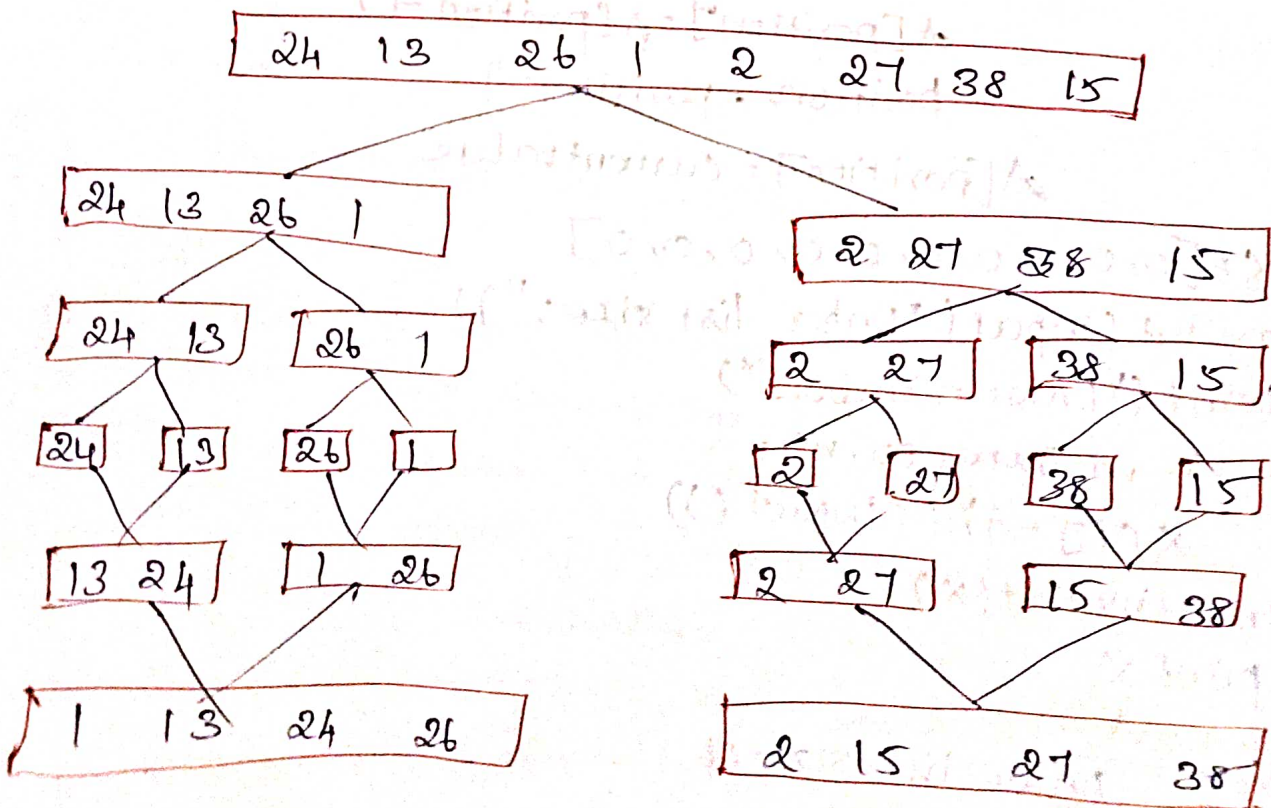 24 13 26 1 2 27 38 15
24 13 26 1
2 27 38 15
24 13
26 1
2 27
38 15
24
13
26
1
2
27
38
15
13 24
1 26
2 27
15 38
1 13 24 26
2 15 27 38